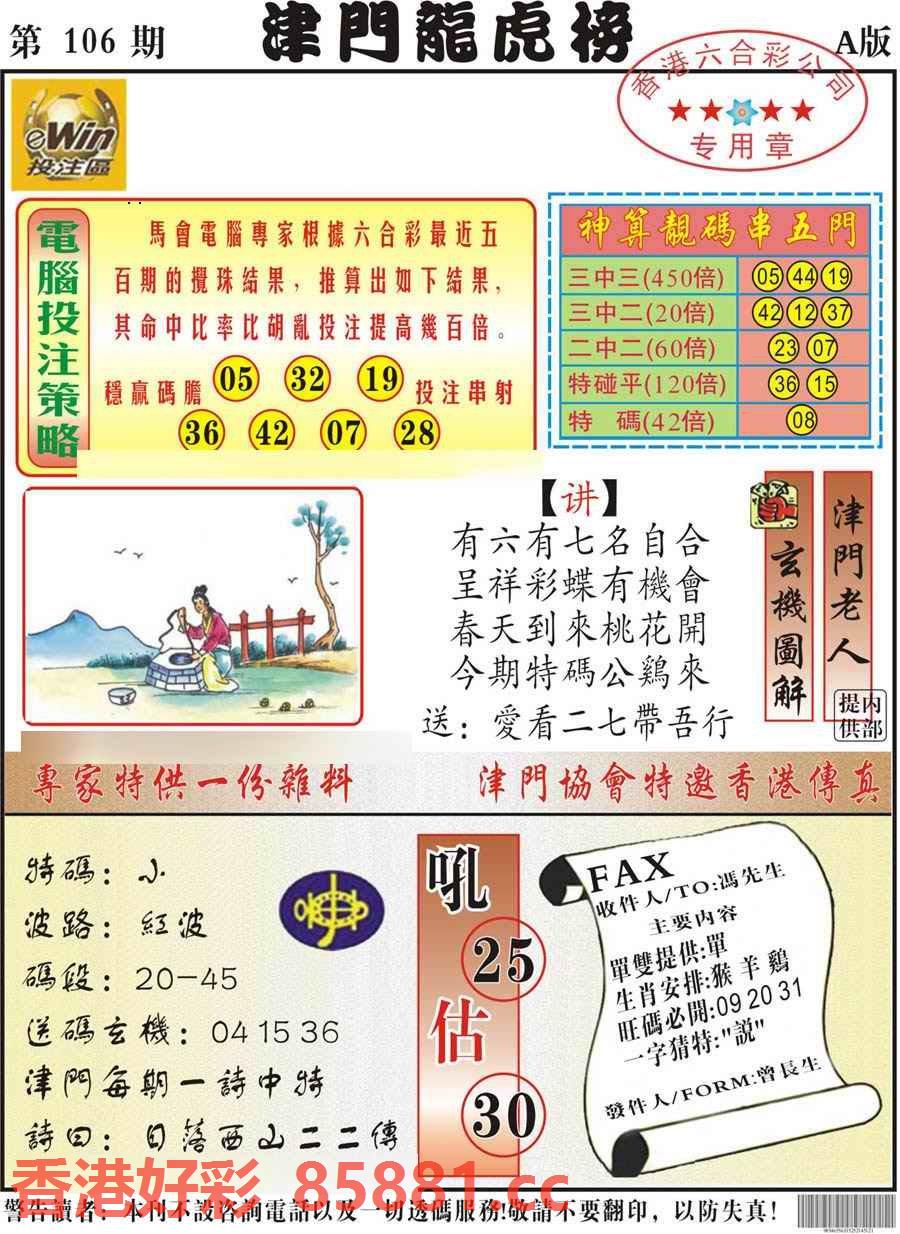 第 106 期
津門龍虎榜
A版
香港六合彩公司
专用章
eWin
投注區
電腦投注策略
馬會電腦專家根據六合彩最近五
百期的攪珠結果，推算出如下結果，
其命中比率比胡亂投注提高幾百倍。
穩贏碼膽 05 32 19 投注串射
36 42 07 28
神算靚碼串五門
三中三(450倍) 05 44 19
三中二(20倍) 42 12 37
二中二(60倍) 23 07
特碰平(120倍) 36 15
特 碼(42倍) 08
【讲】
有六有七名自合
呈祥彩蝶有機會
春天到來桃花開
今期特碼公鷄來
送：愛看二七帶吾行
玄機圖解
津門老人
内部提供
專家特供一份雜料
津門協會特邀香港傳真
特碼：小
波路：紅波
碼段：20－45
送碼玄機：04 15 36
津門每期一詩中特
詩曰：日落西山二二傳
吼
25
估
30
FAX
收件人/TO:馮先生
主要内容
單雙提供:單
生肖安排:猴 羊 鷄
旺碼必開:09 20 31
一字猜特:"説"
發件人/FORM:曾長生
香港好彩 85881.cc
警告讀者：本刊不設咨詢電話以及一切透碼服務!敬請不要翻印，以防失真!